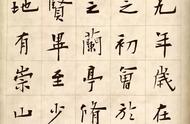 九年歲在
之初會於
之蘭亭脩
賢畢至少
地有崇山